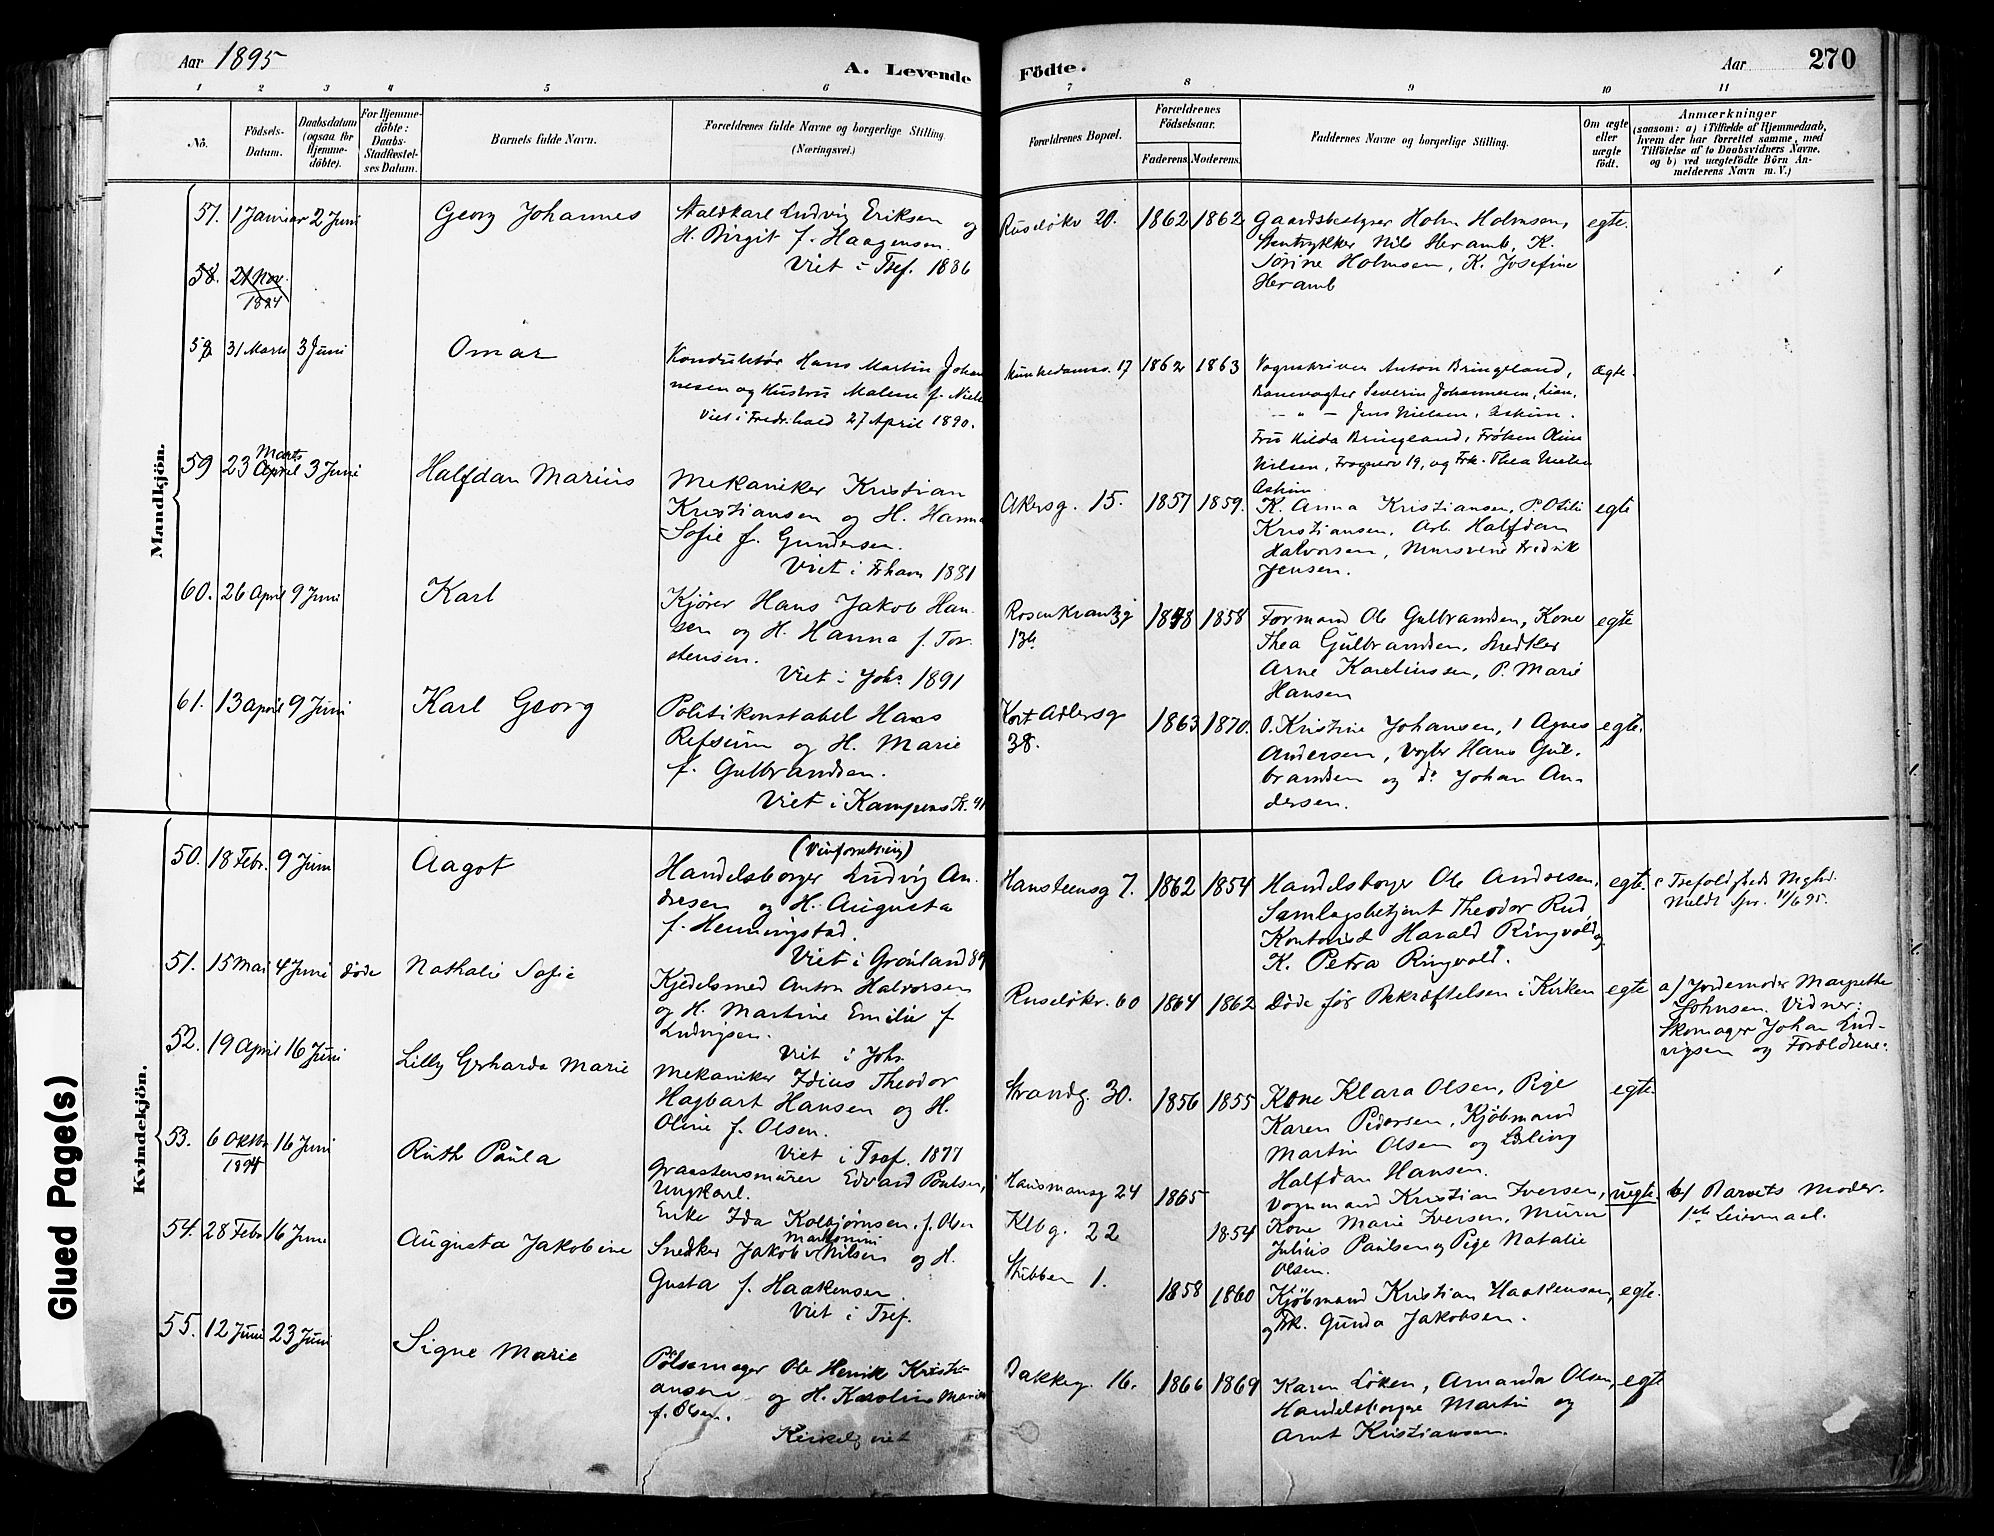 Aar 1895
A. Levende
Födte.
Aar
270
1 2 3 4 5 6 7 8 9 10 11
No.
Födsels-
Datum.
Daabsdatum
(ogsaa for
Hjemme-
döbte).
For Hjemme-
döbte:
Daabs-
Stadfæstel-
ses Datum.
Barnets fulde Navn.
Forældrenes fulde Navne og borgerlige Stilling.
(Næringsvei.)
Forældrenes Bopæl.
Forældrenes
Födselsaar.
Faderens. Moderens.
Faddernes Navne og borgerlige Stilling.
Om ægte
eller
uægte
födt.
Anmærkninger
(saasom: a) i Tilfælde af Hjemmedaab,
hvem der har forrettet samme, med
Tilföielse af to Daabsvidners Navne,
og b) ved uægtefödte Börn An-
melderens Navn m. V.)
Mandkjön.
57. 1 Januar 2 Juni
Georg Johannes
Staldkarl Ludvig Eriksen og
H. Birgit f. Haagensen.
Viet i Tref. 1886
Ruseløkv 20. 1862 1862
Gaardsbestyrer Holm Holmsen,
Stentrykker Nils Heramb, K.
Sørine Holmsen, K. Josefine
Heramb
egte.
58. 21 Nov.
1894
59 31 Marts 3 Juni
Omar
Konduktør Hans Martin Johan
nesen og Hustru Malene f. Niels
Viet i Fredr.hald 27 April 1890.
Munkedamsv. 17 1862 1863
Vognskriver Anton Bringeland,
Banevogter Severin Johannesen, Lian,
-- " - Jens Nielsen, Askim.
Fru Hilda Bringeland, Frøken Oline
Nilsen, Frognerv 19, og Frk. Thea Nielsen
Askim
ægte.
59 23 Marts
April 3 Juni
Halfdan Marius
Mekaniker Kristian
Kristiansen og H. Hanna
Sofie f. Gundersen.
Viet i Frhavn 1881
Akersg. 15. 1857 1859.
K. Anna Kristiansen, P. Otili
Kristiansen, Arb. Halfdan
Halvorsen, Mursvend Fredrik
Jensen.
egte
60. 26 April 9 Juni
Karl
Kjører Hans Jakob Han-
sen og H. Hanna f. Tor-
stensen.
Viet i Joh. 1891
Rosenkrantzg
13b 1848 1858
Formand Ole Gulbrandsen, Kone
Thea Gulbrandsen, Snedker
Arne Kareliussen, P. Marie
Hansen
egte
61. 13 April 9 Juni
Karl Georg
Politikonstabel Hans
Refsum og H. Marie
f. Gulbrandsen.
Viet i Kampens K. 91
Kort Adlersg
38. 1863 1870.
Kristine Johansen, Agnes
Andersen, Vogter Hans Gul-
brandsen og do Johan An-
dersen.
egte.
Kvindekjön.
50. 18 Febr. 9 Juni
Aagot
(Vinforretning)
Handelsborger Ludvig An-
dresen og H. Augusta
f. Henningstad.
Viet i Grønland 89
Hansteensg 7. 1862 1854
Handelsborger Ole Andresen,
Samlagsbetjent Theodor Rud,
Kontorist Harald Ringvold og
K. Petra Ringvold.
egte.
Trefoldigheds Mghd.
Meldt Spr. 11/6 95.
51. 15 Mai 4 Juni døde
Nathalie Sofie
Kjedelsmed Anton Halvorsen
og H. Martine Emilie f
Ludvigsen.
Viet i Joh.
Ruseløkv. 60 1864 1862
Døde før Bekræftelsen i Kirken
egte
a) Jordemoder Margrethe
Johnsen. Vidner:
Skomager Johan Lud-
vigsen og Forældrene.
52. 19 April 16 Juni
Lilly Gerharda Marie
Mekaniker Idius Theodor
Hagbart Hansen og H.
Oline f. Olsen.
Viet i Tref. 1877
Strandg. 30. 1856 1855
Kone Klara Olsen, Pige
Karen Pedersen, Kjøbmand
Martin Olsen og Lærling
Halfdan Hansen.
egte.
53. 6 Oktbr
1894 16 Juni
Ruth Paula
Graastensmurer Edvard Paulsen,
Ungkarl.
Enke Ida Kolbjørnsen f. Olsen
Hausmansg 24 1865
Klbg. 22 1854
Vognmand Kristian Iversen,
Kone Marie Iversen, Murer
Julius Paulsen og Pige Natalie
Olsen.
uegte.
b) Barnets Moder.
1ste Leiermaal.
54. 28 Febr 16 Juni
Augusta Jakobine
Snedker Jakob Nilsen og H.
Gusta f. Haakensen.
Viet i Tref.
Stubben 1. 1858 1860
Kjøbmand Kristian Haakensen,
og Frk. Gunda Jakobsen.
egte.
55. 12 Juni 23 Juni
Signe Marie
Pølsemager Ole Henrik Kristi-
ansen og H. Karoline Marie
f. Olsen.
Kirkelig viet
Bakkeg. 16. 1866 1869
Karen Løken, Amanda Olsen,
Handelsborgere Martin og
Arnt Kristiansen.
egte
Glued Page(s)